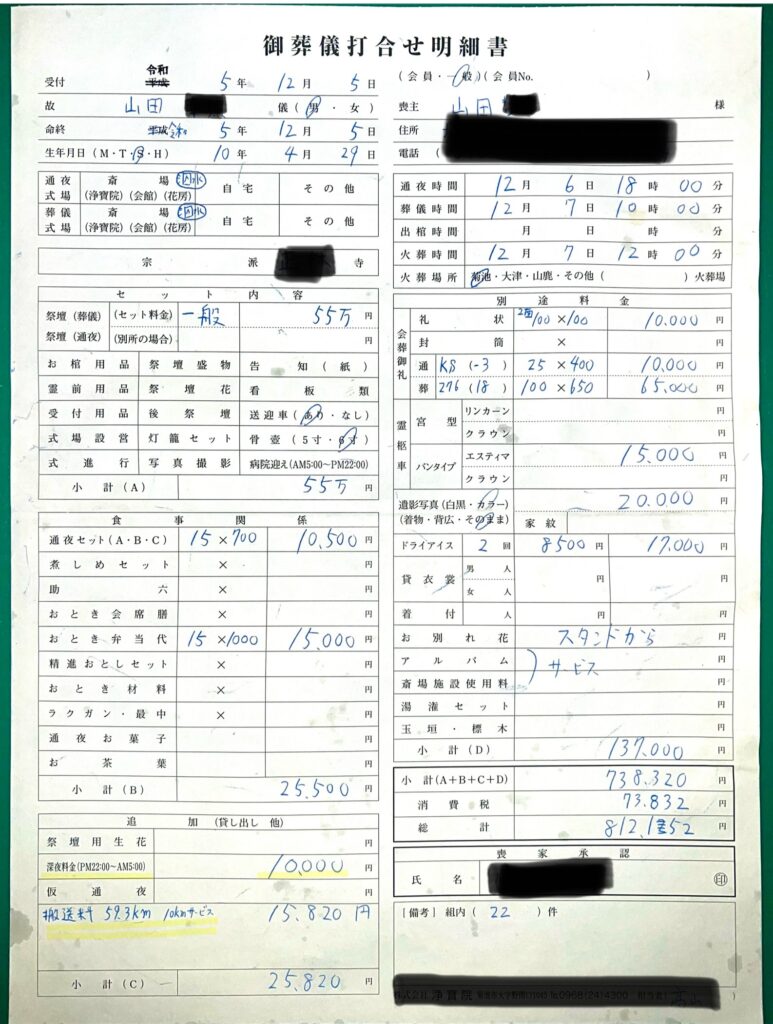 御葬儀打合せ明細書
受付 平成 令和 5年 12月 5日
故 山田 儀(男・女)
命終 平成 令和 5年 12月 5日
生年月日(M・T・S・H) 10年 4月 29日
(会員・一般)(会員No. )
喪主 山田 様
住所
電話(
通夜式場 斎場 (浄寶院)(会館)(花房) 自宅 その他
葬儀式場 斎場 (浄寶院)(会館)(花房) 自宅 その他
宗派 寺
通夜時間 12月 6日 18時 00分
葬儀時間 12月 7日 10時 00分
出棺時間 月 日 時 分
火葬時間 12月 7日 12時 00分
火葬場所 菊池・大津・山鹿・その他( )火葬場
セット内容
祭壇(葬儀) (セット料金) 一般 55万円
祭壇(通夜) (別所の場合) 円
お棺用品 祭壇盛物 告知(紙)
霊前用品 祭壇花 看板類
受付用品 後祭壇 送迎車(あり・なし)
式場設営 灯籠セット 骨壺(5寸・6寸)
式進行 写真撮影 病院迎え(AM5:00〜PM22:00)
小計(A) 55万円
食事関係
通夜セット(A・B・C) 15×700 10,500円
煮しめセット × 円
助六 × 円
おとき会席膳 × 円
おとき弁当代 15×1000 15,000円
精進おとしセット × 円
おとき材料 × 円
ラクガン・最中 × 円
通夜お菓子 円
お茶葉 円
小計(B) 25,500円
追加(貸し出し 他)
祭壇用生花 円
深夜料金(PM22:00〜AM5:00) 10,000円
仮通夜 円
搬送料 59.3km 10kmサービス 15,820円
小計(C) 25,820円
別途料金
会葬御礼
礼状 100×100 10,000円
封筒 × 円
通 K8(-3) 25×400 10,000円
葬 276(18) 100×650 65,000円
霊柩車
宮型 リンカーン 円
クラウン 円
バンタイプ エスティマ 15,000円
クラウン 円
遺影写真(白黒・カラー) 20,000円
(着物・背広・そのまま) 家紋
ドライアイス 2回 8500円 17,000円
貸衣裳 男 人 円 円
女 人
着付 人 円 円
お別れ花 スタンドから 円
アルバム サービス 円
斎場施設使用料 円
湯灌セット 円
玉垣・標木 円
小計(D) 137,000円
小計(A+B+C+D) 738,320円
消費税 73,832円
総計 812,152円
喪家承認
氏名 印
[備考] 組内(22)件
株式会社 浄寶院 0968(24)4300 担当者( )